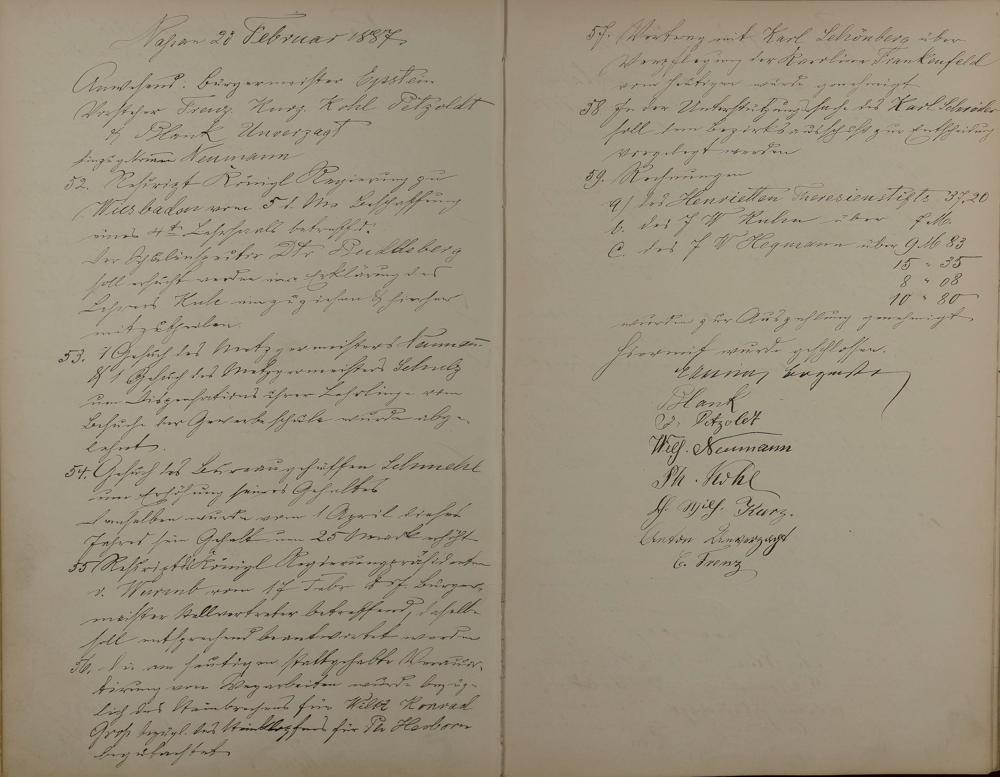 Nassau 28 Februar 1887
Anwesend. Bürgermeister Epstein
Vorsteher Trenz. Kurz. Kohl Petzoldt
Blank Unverzagt
Neumann
52. Rescript Königl Regierung zu
Wiesbaden vom 5 l. Mts Beschaffung
eines 4ten Lehrsaals betreffd:
Der Schulinspector Dr. Buddeberg
soll ersucht werden eine Erklärung des
Lehrers einzuziehen & hierher
mitzutheilen.
53. 1 Gesuch des Metzgermeisters Neumann
& 1 Gesuch des Metzgermeisters Schulz
um Dispensation ihrer Lehrlinge vom
Besuche der Gewerbeschule wurde abge-
lehnt.
54. Gesuch des Bureaugehülfen Schmehl
um Erhöhung seines Gehaltes
demselben wurde vom 1 April dieses
Jahres sein Gehalt um 25 Mark erhöht
55 Rescript des Königl Regierungspräsidenten
v. Wurmb vom 17 Febr d. J. Bürger-
meister Stellvertreter betreffend, dasselbe
soll entsprechend beantwortet werden
56. Die am heutigen stattgehabte Veraccor-
dirung von Wegarbeiten wurde bezüg-
lich des Steinbrechens für Konrad
Groß bezügl. des Steinklopfens für Ph Herborn
begutachtet
57. Vertrag mit Karl Schönberg über
Verpflegung der Karoline Frankenfeld
vom heutigen wurde genehmigt
58 In der Unterstützungssache des Karl
soll dem Bezirksausschuß zur Entscheidung
vorgelegt werden
59. Rechnungen
a) des Henrietten Theresienstifts 37,20
b. des J W Kuhn über
c. des J W Hegmann über 9 M 83
15 " 35
8 " 08
10 " 80
wurden zur Auszahlung genehmigt
Hiermit wurde geschlossen.
Blank
Petzoldt
Wilh. Neumann
Ph. Kohl
Wilh. Kurz.
Anton Unverzagt
C. Trenz